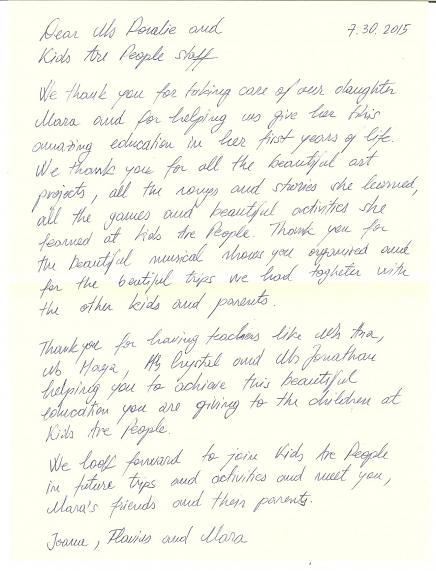 Dear Ms Peralie and 7.30.2015
Kids Are People staff
We thank you for taking care of our daughter
Mara and for helping us give her this
amazing education in her first years of life.
We thank you for all the beautiful art
projects, all the songs and stories she learned,
all the games and beautiful activities she
learned at Kids Are People. Thank you for
the beautiful musical shows you organized and
for the beutiful trips we had togheter with
the other kids and parents.
Thank you for having teachers like Ms Ana,
Ms Maya, Ms Crystal and Ms Jonathan
helping you to achieve this beautiful
education you are giving to the children at
Kids Are People.
We look forward to join Kids Are People
in future trips and activities and meet you,
Mara's friends and their parents.
Joana, Flavius and Mara